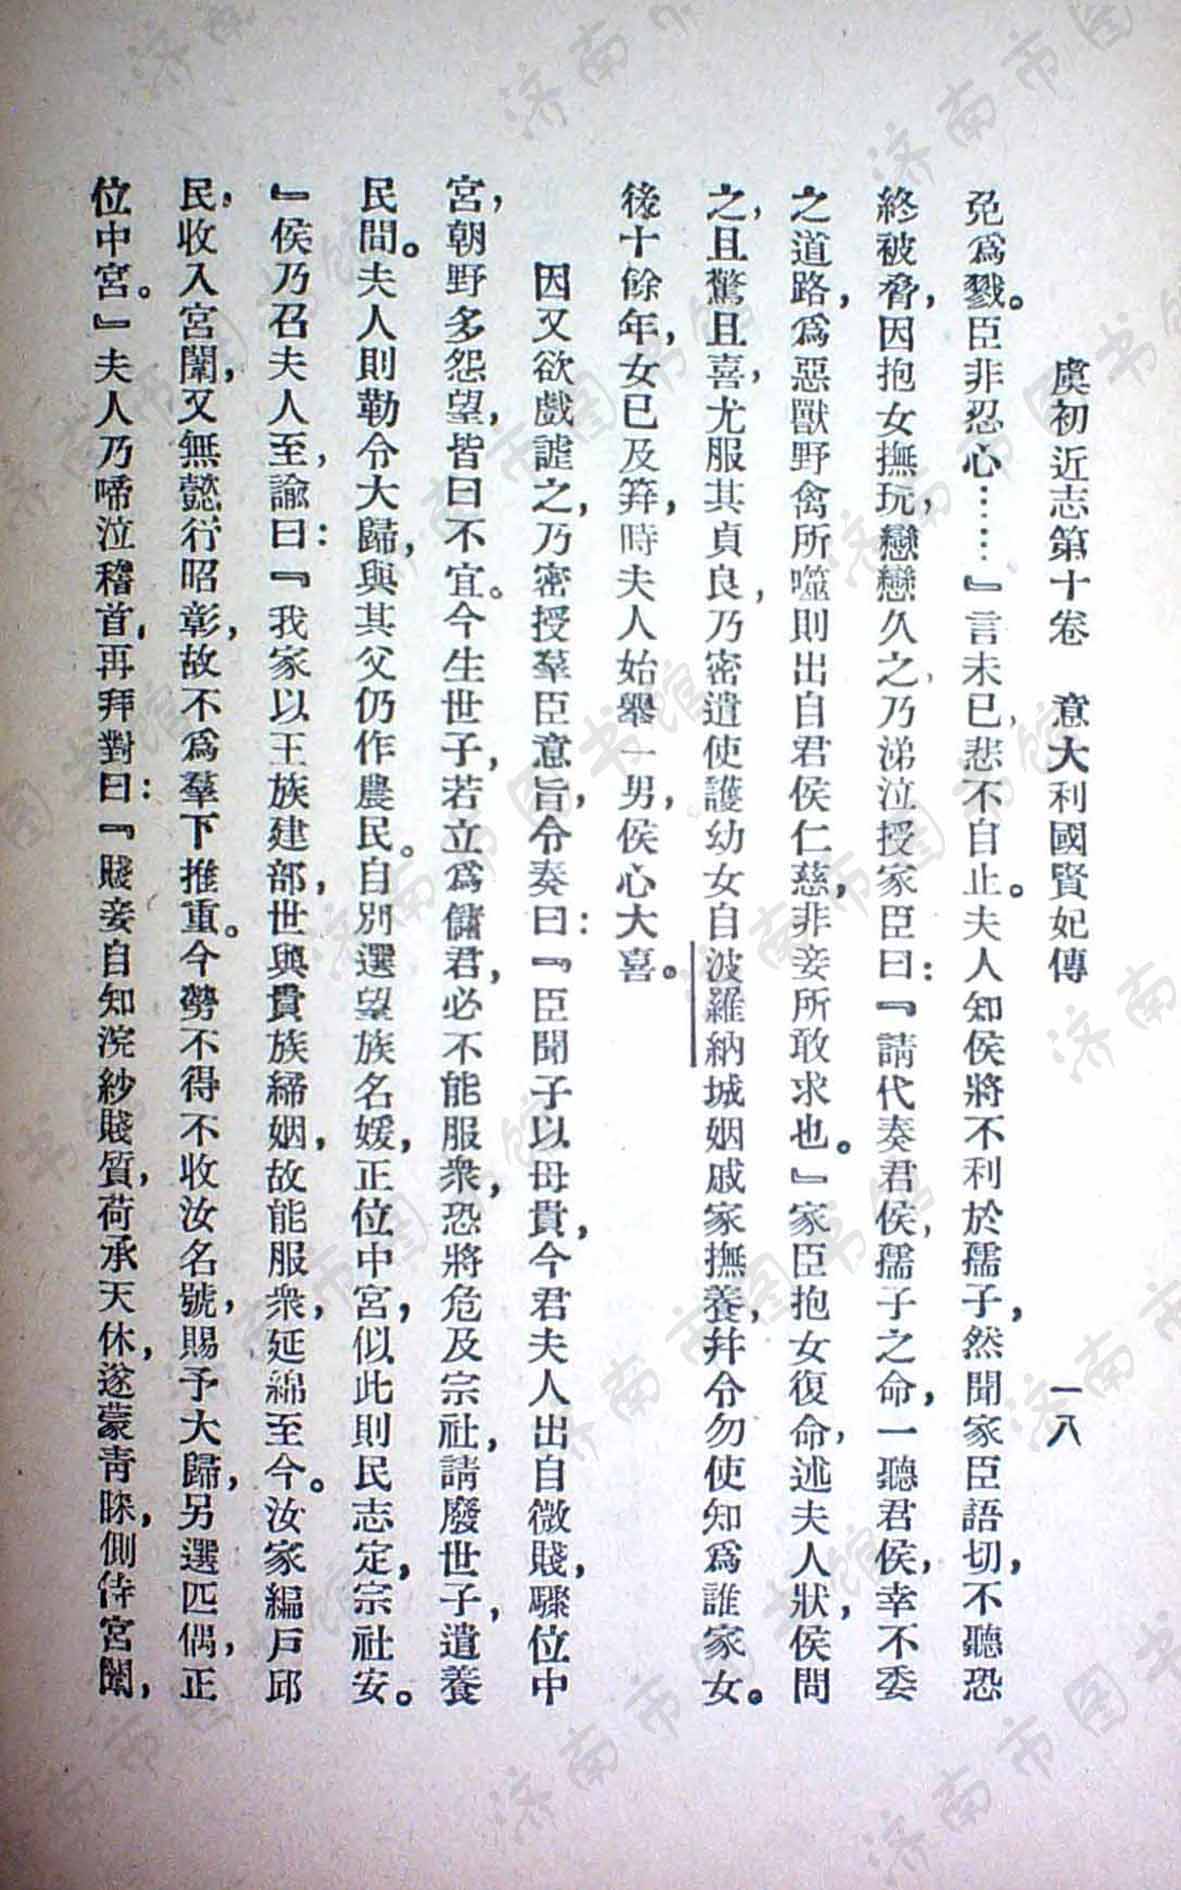 虞初近志第十卷　意大利國賢妃傳　一八
免爲戮。臣非忍心……』言未已，悲不自止。夫人知侯將不利於孺子，然聞家臣語切，不聽恐
終被脅，因抱女撫玩，戀戀久之，乃涕泣授家臣曰：『請代奏君侯，孺子之命，一聽君侯，幸不委
之道路，爲惡獸野禽所噬，則出自君侯仁慈，非妾所敢求也。』家臣抱女復命，述夫人狀，侯聞
之，且驚且喜，尤服其貞良，乃密遣使護幼女自波羅納城姻戚家撫養，幷令勿使知爲誰家女。
後十餘年，女已及笄，時夫人始舉一男，侯心大喜。
因又欲戲謔之，乃密授羣臣意旨，令奏曰：『臣聞子以母貴，今君夫人出自微賤，驟位中
宮，朝野多怨望，皆曰不宜。今生世子，若立爲儲君，必不能服衆，恐將危及宗社，請廢世子，遺養
民間。夫人則勒令大歸，與其父仍作農民。自別選望族名媛，正位中宮，似此則民志定，宗社安。
』侯乃召夫人至，諭曰：『我家以王族建部，世與貴族締姻，故能服衆，延綿至今。汝家編戶邱
民，收入宮闈，又無懿行昭彰，故不爲羣下推重。今勢不得不收汝名號，賜予大歸，另選匹偶，正
位中宮。』夫人乃啼泣稽首，再拜對曰：『賤妾自知浣紗賤質，荷承天休，遂蒙靑睞，側侍宮闈，
济南市图书馆